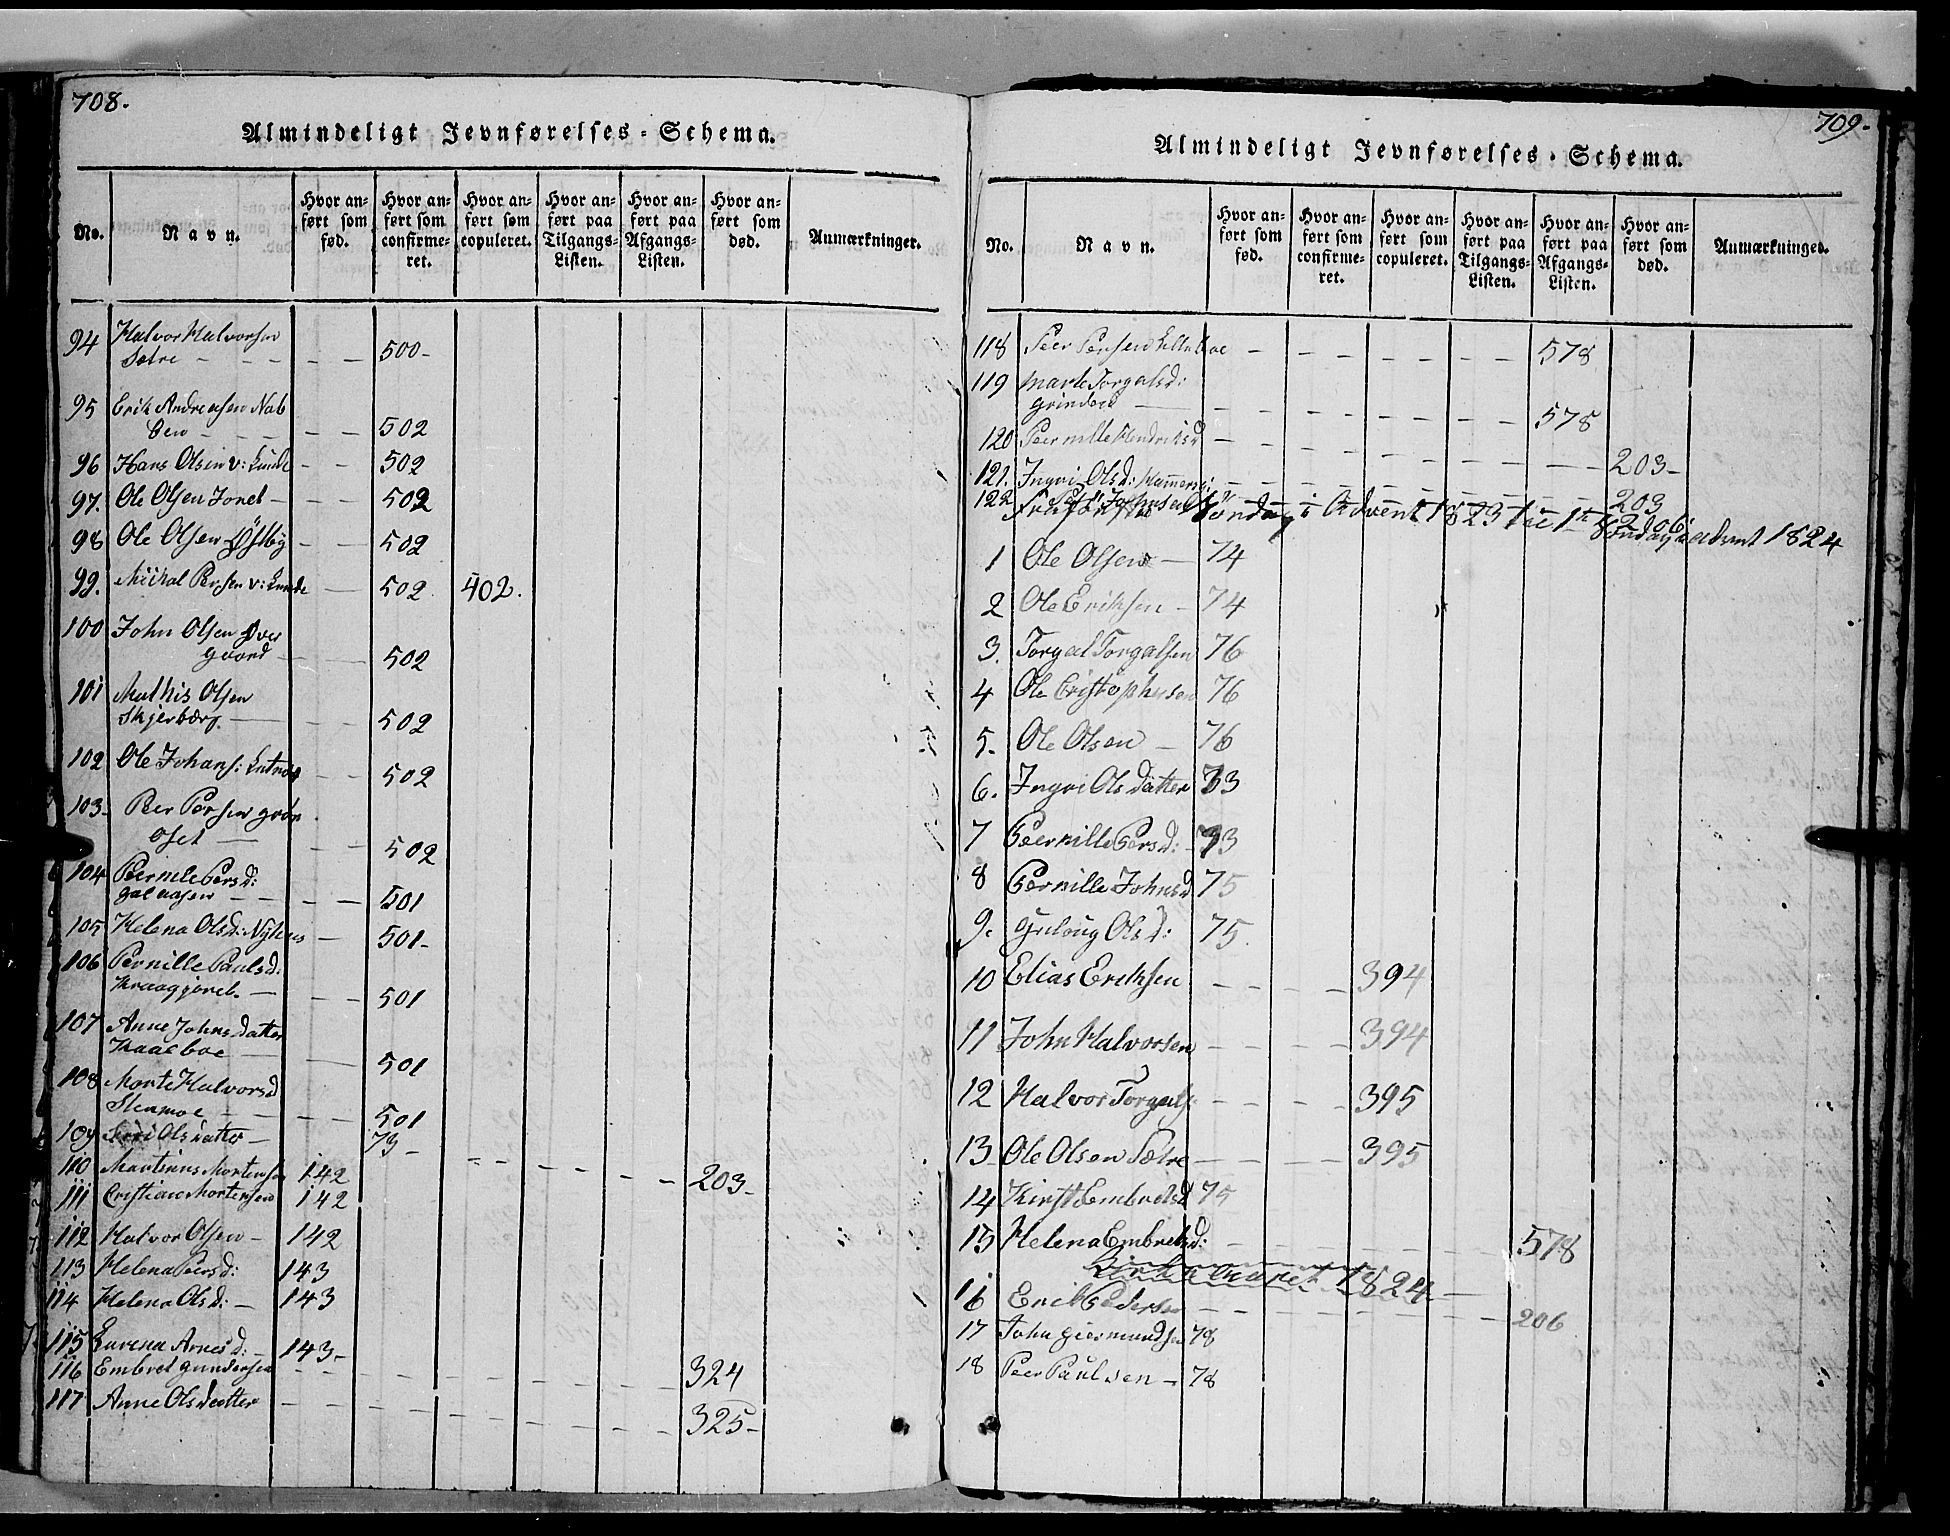 708.
Almindeligt Jevnførelses-Schema.
No.
Navn.
Hvor anført som fød.
Hvor anført som confirmeret.
Hvor anført som copuleret.
Hvor anført paa Tilgangs-Listen.
Hvor anført paa Afgangs-Listen.
Hvor anført som død.
Anmærkninger.
94 Halvor Halvorsen
Sætre — — — 500-
95 Erik Andreasen Nab
ben — — — 502
96 Hans Olsen v: Lunde - - 502
97. Ole Olsen Jonet — 502
98 Ole Olsen Østby - - 502
99. Mikal Persen v: Lunde — 502 402.
100 John Olsen Over
gaard — — 502
101 Mathis Olsen
Skjerbærg. — — — 502
102 Ole Johans: — — 502
103- Peer Persen grøn
oset — — — 502
104 Pernele Persd:
galaasen — — — 501
105 Helena Olsd: — 501-
106 Pernille Paulsd:
— — — 501
107 Anne Johnsdatter
Kaaeboe — — 501
108 Morte Halvorsd
Stenmoe — — — 501
109 Olsdatter — 73-
110 Martinus Mortensen 142 - - - - - - 203-
111 Cristian Mortensen 142
112 Halvor Olsen — 142
113 Helena Peersd: 143
114 Helena Olsd: — 143
115 Lavena Arnesd: - 143-
116 Embret gundersen - - - - - - 324
117 Anne Olsdatter - - - - - - 325-
709-
Almindeligt Jevnførelses-Schema.
No.
Navn.
Hvor anført som fød.
Hvor anført som confirmeret.
Hvor anført som copuleret.
Hvor anført paa Tilgangs-Listen.
Hvor anført paa Afgangs-Listen.
Hvor anført som død.
Anmærkninger.
118 Peer Persen Lilleboe - - - - - 578
119 marte Torgalsd:
— - - - - - 578
120 Peernille Hendriksd - - - - - - 203-
121. Ingri Olsd: - - - - - - 203
122 Johnsen 206
Fra første Søndag i Advent 1823 til 1te Søndag i advent 1824
1 Ole Olsen — 74
2 Ole Eriksen - 74
3. Torgal Torgalsen 76
4 Ole Cristophersen 76
5. Ole Olsen — 76
6. Ingri Olsdatter 73
7 Peernille Persd: - 73
8 Pernille Johnsd 75
9. guloug Olsd: 75.
10 Elias Eriksen - - - 394
11 John Halvorsen - - - 394
12 Halvor Torgals: - - - 395
13 Ole Olsen Sætre - - - 395
14 Kirsti Embretsd 75
15 Helena Embretsd: - - - - 578
Kirkeaaret 1824
16 Erik Pedersen - - - - 206
17 John giermundsen 78
18 Peer Paulsen - 78